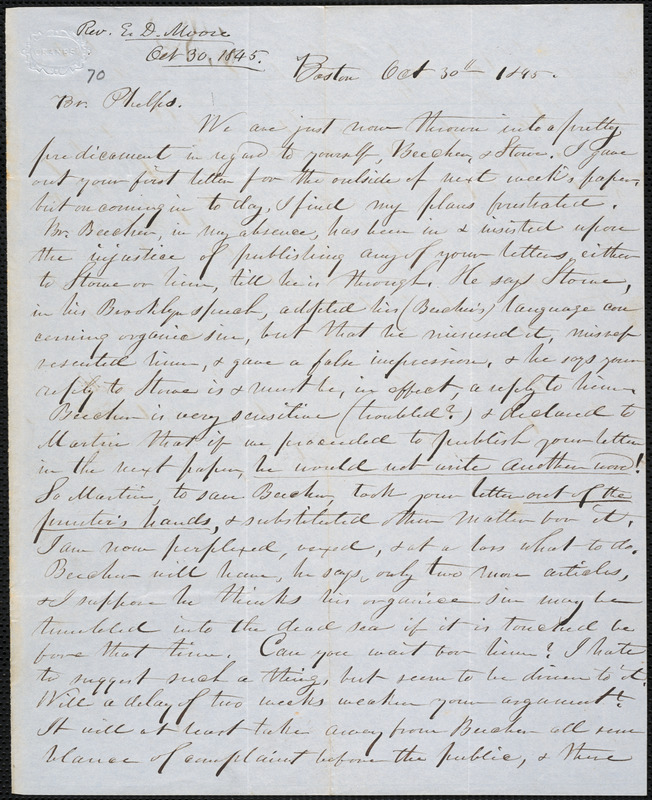 Rev. E. D. Moore
Oct 30, 1845.
70
Boston Oct 30th 1845.
Br. Phelps.
We are just now thrown into a pretty
predicament in regard to yourself, Beecher, & Stowe. I gave
out your first letter for the outside of next week's paper,
but on coming in to day, I find my plans frustrated.
Br. Beecher, in my absence, has been in & insisted upon
the injustice of publishing any of your letters, either
to Stowe or him, till he is through. He says Stowe,
in his Brooklyn speech, adopted his (Beecher's) language con
cerning organic sin, but that he misused it, misrep
resented him, & gave a false impression, & he says your
reply to Stowe is & must be, in effect, a reply to him.
Beecher is very sensitive (troubled?) & declared to
Martin that if we proceeded to publish your letter
in the next paper, he would not write another word!
So Martin, to save Beecher, took your letter out of the
printer's hands, & substituted other matter for it.
I am now perplexed, vexed, & at a loss what to do.
Beecher will have, he says, only two more articles,
& I suppose he thinks his organic sin may be
tumbled into the dead sea if it is touched be
fore that time. Can you wait for him? I hate
to suggest such a thing, but seem to be driven to it.
Will a delay of two weeks weaken your argument?
It will at least take away from Beecher all sem
blance of complaint before the public, & there